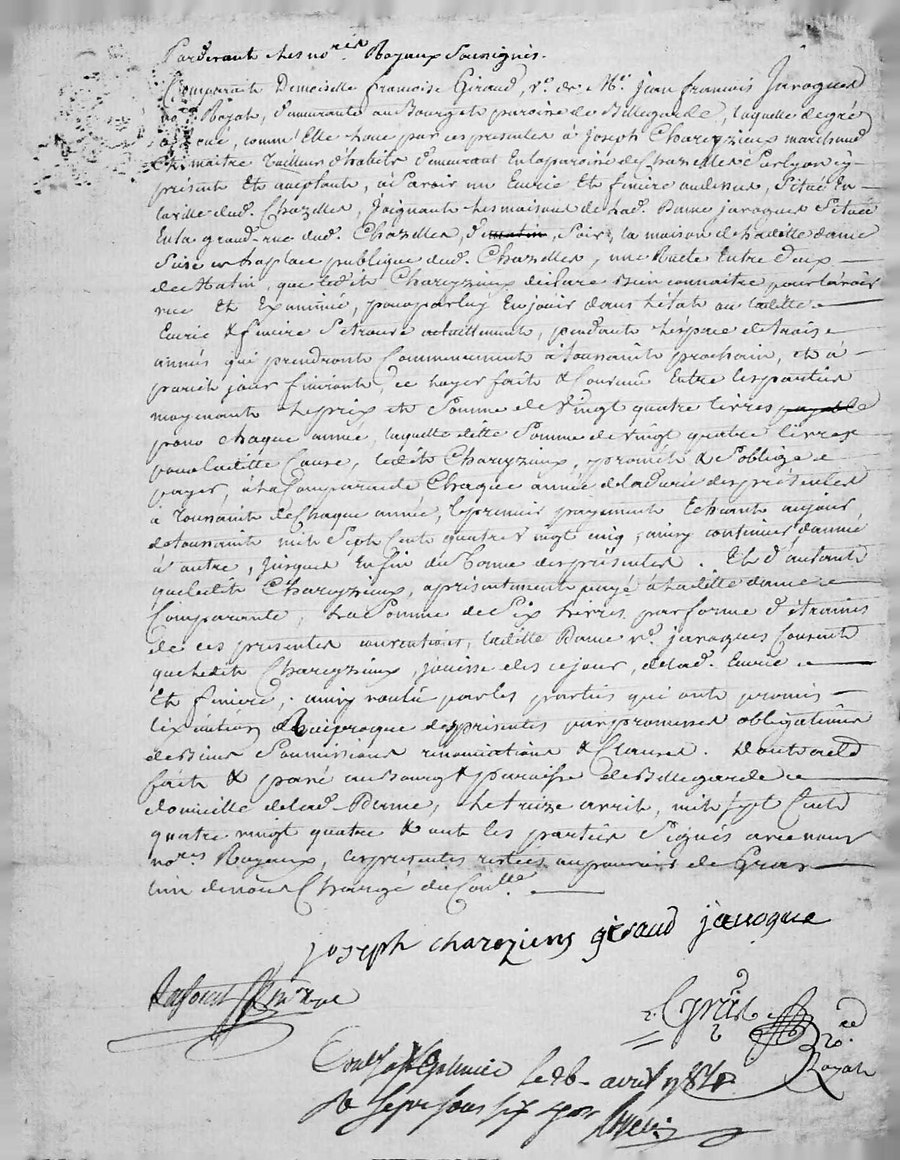 Pardevant les no.res Royaux Soussignés.
Comparait Demoiselle francoise Giraud, v.e de M.e jean francois Javogues
no.re Royal, demeurante au Bourg et paroisse de Bellegarde, laquelle de gré
a loué, comme Elle loue par ces presentes à Joseph Chareyzieux marchand
Et maitre Tailleur d'habits demeurant En la paroisse de Chazelles
présent Et acceptant, à Savoir un Ecurie Et feniere au dessus, Situé En
la ville dud. Chazelles, Joignant les maisons de lad. Dame javogues Située
En la grand-rue dud. Chazelles, de matin, Soir, la maison de laditte dame
Sise en la place publique dud. Chazelles, une Ruele Entre deux
de Matin, que ledit Chareyzieux déclare Bien connaitre pour l'avoir
vue Et Examinée, pour par luy En jouir dans l'état ou laditte
Ecurie & feniere Se trouve actuellement, pendant l'espace de trois
années qui prendront Commencement à toussaint prochain, Et à
pareil jour finiront, ce loyer fait & Convenu Entre les parties
moyenant le prix et Somme de vingt quatre livres payable
pour chaque année, laquelle ditte Somme de vingt quatre livres
pour laditte Cause, ledit Chareyzieux, promet & S'oblige
payer, à la Comparante Chaque année de la durée des présentes
à Toussaint de Chaque année, le premier payement Echeant au jour
de toussaint mil Sept Cent quatre vingt cinq, ainsy continuer d'année
à autre, jusques En fin du Terme des présentes. Et d'autant
que ledit Chareyzieux, a présentement payé à laditte dame
Comparante, la Somme de Six livres par forme d'étraines
de ces presentes conventions, laditte Dame v.e javogues Consent
que ledit Chareyzieux, jouisse dès ce jour, de lad. Ecurie
Et feniere, ainsy voulu par les parties qui ont promis
l'exécution réciproque des présentes par promesses obligations
de Biens Soumissions renonciations & Clauses. Dont acte
fait & passé au Bourg & paroisse de Bellegarde
domicille de lad. Dame, le treize avril, mil sept Cent
quatre vingt quatre & ont les parties Signés avec nous
no.res Royaux, les presentes restées au pouvoir de Gras
l'un de nous Chargé du Con.lle
joseph chareziens giraud javogue
no.re Royal
Gras no.re
Royal
le 26 avril 1784